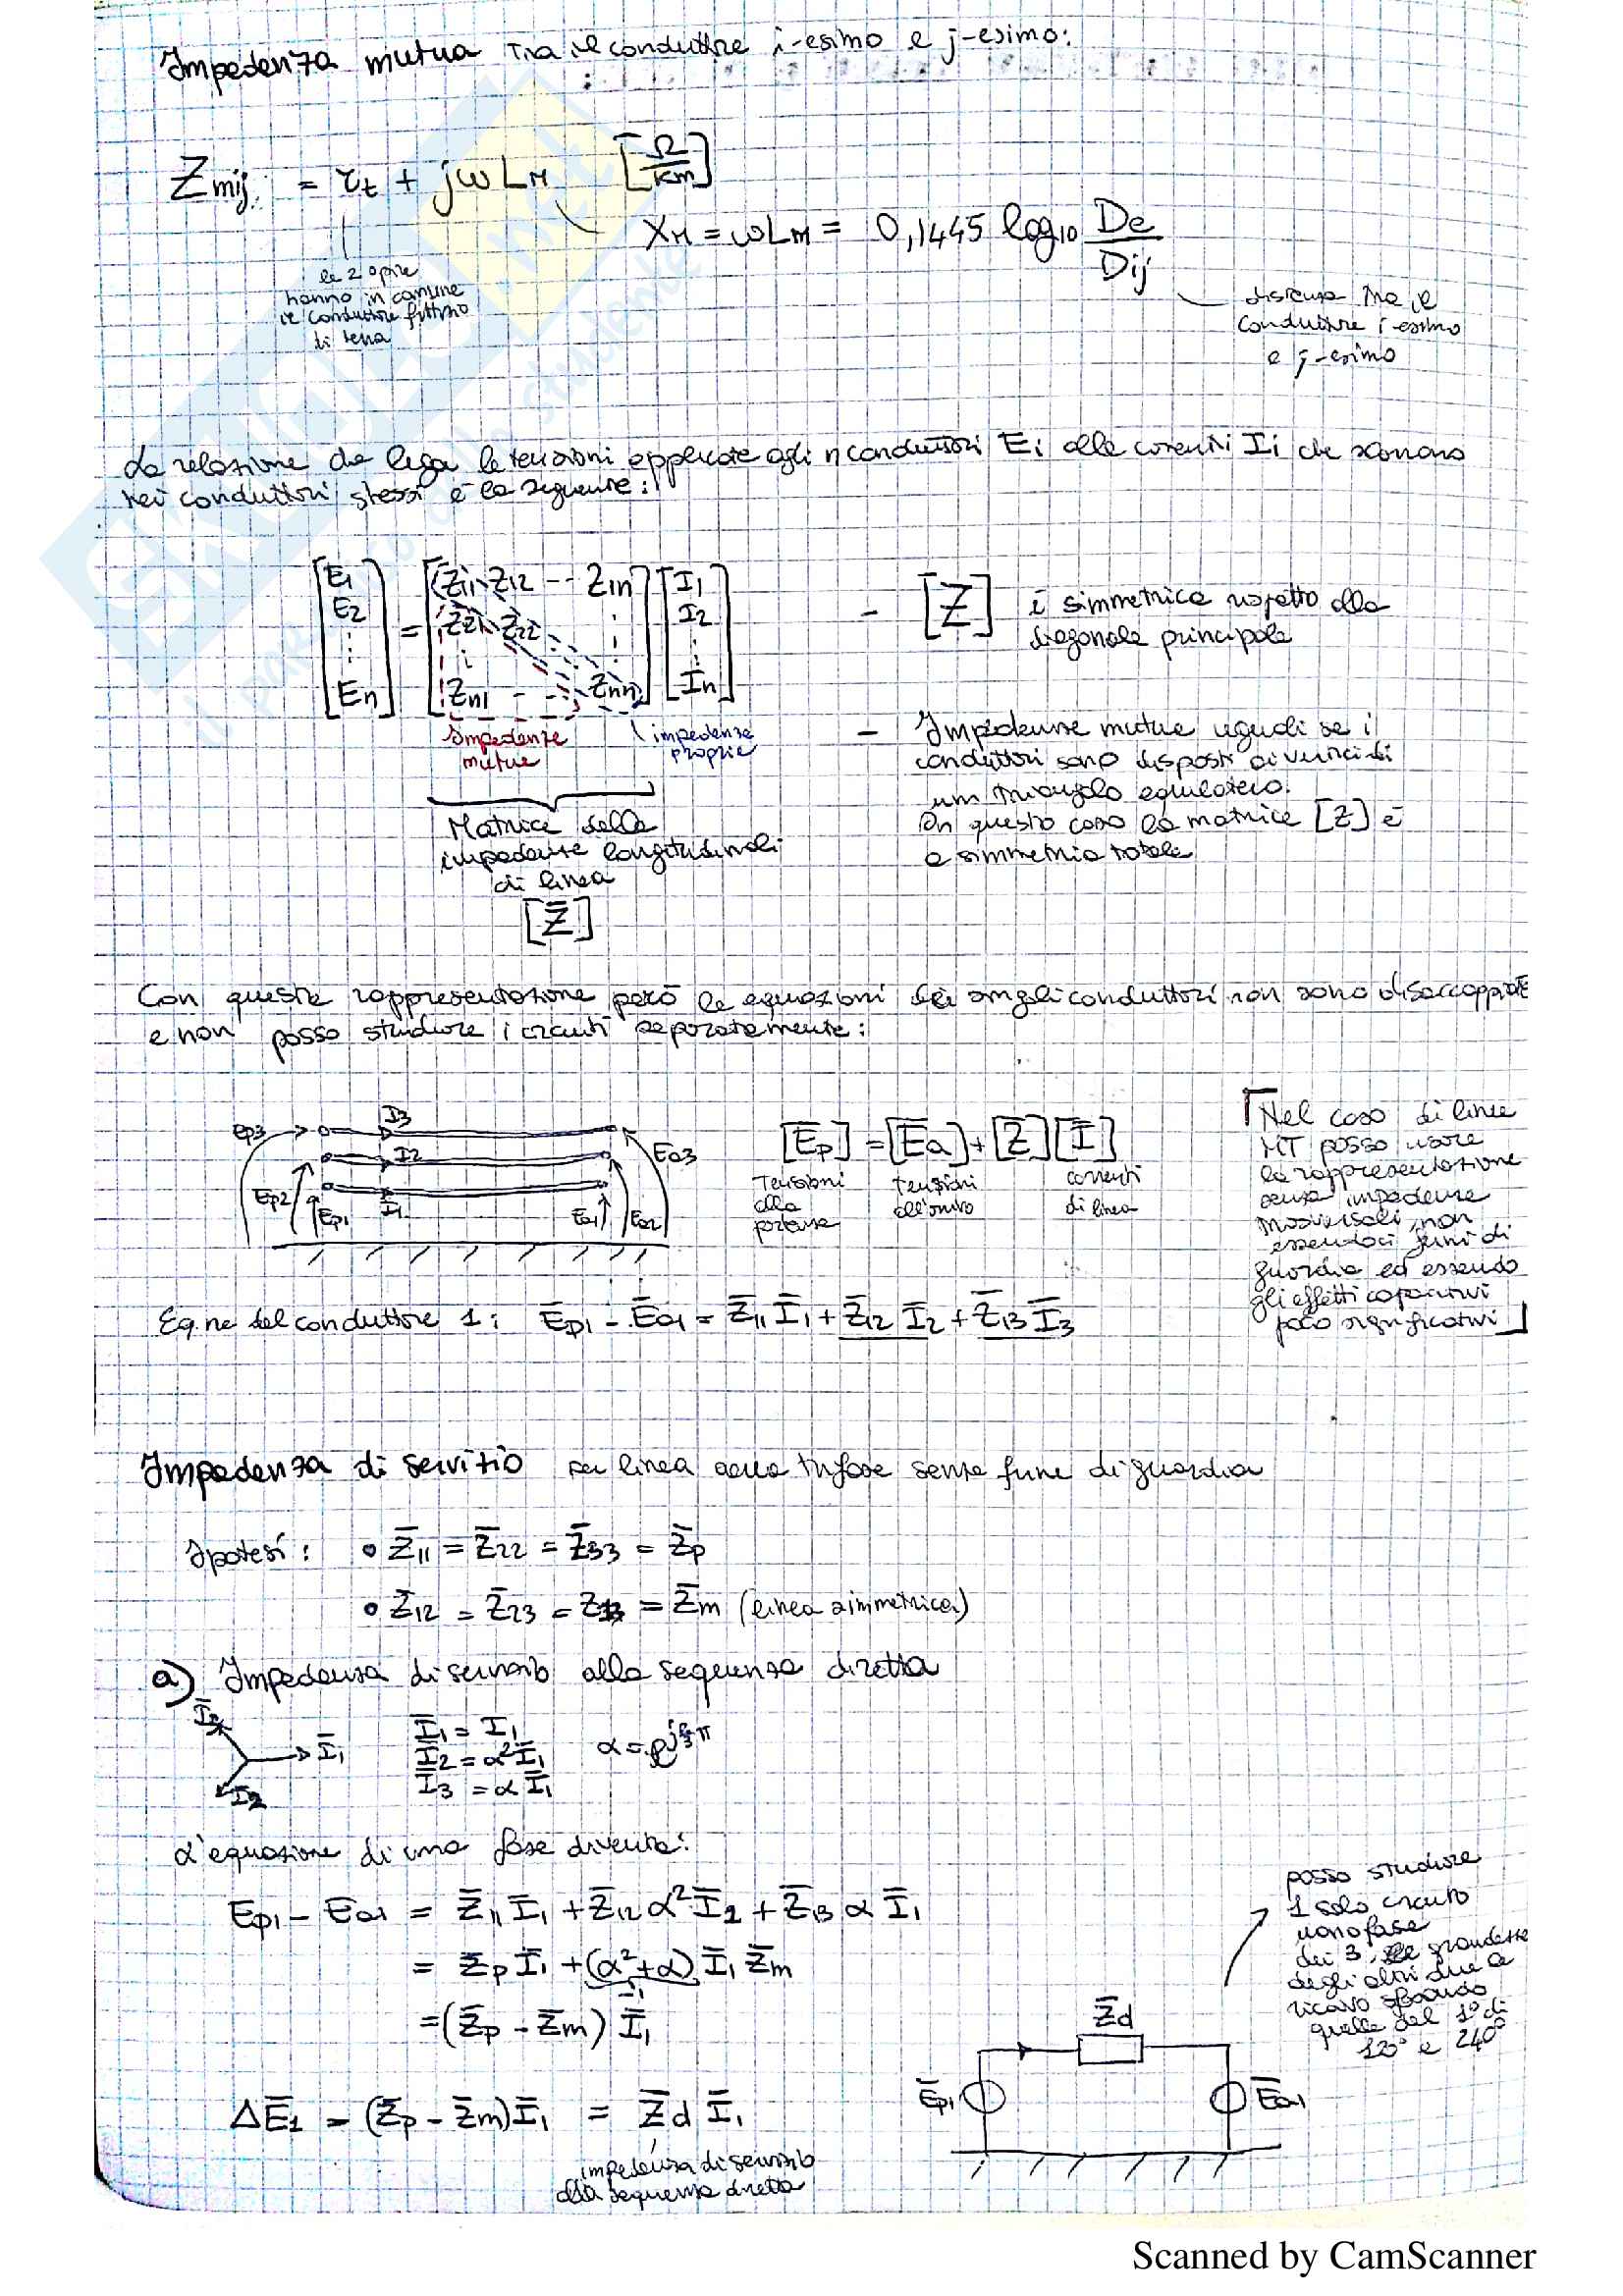 Impedenza mutua tra il conduttore i-esimo e j-esimo:
Zmij = rt + jωLM [Ω/km]
XM = ωLM = 0,1445 log10 De/Dij
le 2 spire
hanno in comune
il conduttore fittizio
di terra
distanza tra il
conduttore i-esimo
e j-esimo
La relazione che lega le tensioni applicate agli n conduttori Ei alle correnti Ii che scorrono
nei conduttori stessi è la seguente:
[E1 E2 ⋮ En] = [Z11 Z12 -- Z1n Z21 Z22 ⋮ Zn1 - - Znn] [I1 I2 ⋮ In]
Impedenze
mutue
impedenze
proprie
Matrice delle
impedenze longitudinali
di linea
[Z̄]
- [Z] è simmetrica rispetto alla
diagonale principale
- Impedenze mutue uguali se i
conduttori sono disposti ai vertici di
un triangolo equilatero.
In questo caso la matrice [Z] è
a simmetria totale
Con questa rappresentazione però le equazioni dei singoli conduttori non sono disaccoppiate
e non posso studiare i circuiti separatamente:
Ep3 I3 Ea3
Ep2 I2 Ea2
Ep1 I1 Ea1
[Ēp] = [Ēa] + [Z̄][Ī]
tensioni
alla
partenza
tensioni
all'arrivo
correnti
di linea
Nel caso di linee
MT posso usare
la rappresentazione
senza impedenze
trasversali, non
essendoci funi di
guardia ed essendo
gli effetti capacitivi
poco significativi
Eq.ne del conduttore 1: Ēp1 - Ēa1 = Z̄11 Ī1 + Z̄12 Ī2 + Z̄13 Ī3
Impedenza di servizio per linea aerea trifase senza fune di guardia
Ipotesi: • Z̄11 = Z̄22 = Z̄33 = Z̄p
• Z̄12 = Z̄23 = Z13 = Z̄m (linea simmetrica)
a) Impedenza di servizio alla sequenza diretta
Ī3
Ī1
Ī2
Ī1 = I1
Ī2 = α²Ī1
Ī3 = αĪ1
α = e^j⅔π
L'equazione di una fase diventa:
Ep1 - Ea1 = Z̄11 Ī1 + Z̄12 α² Ī1 + Z̄13 α Ī1
= Z̄p Ī1 + (α²+α) Ī1 Z̄m
-1
= (Z̄p - Z̄m) Ī1
ΔĒ1 = (Z̄p - Z̄m) Ī1 = Z̄d Ī1
impedenza di servizio
alla sequenza diretta
posso studiare
1 solo circuito
monofase
dei 3, le grandezze
degli altri due le
ricavo sfasando
quelle del 1° di
120° e 240°
Z̄d
Ēp1
Ēa1
Scanned by CamScanner